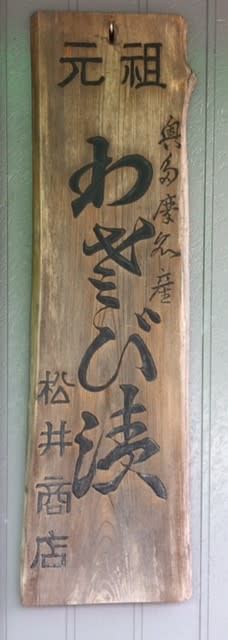 元祖
奥多摩名産
わさび漬
松井商店